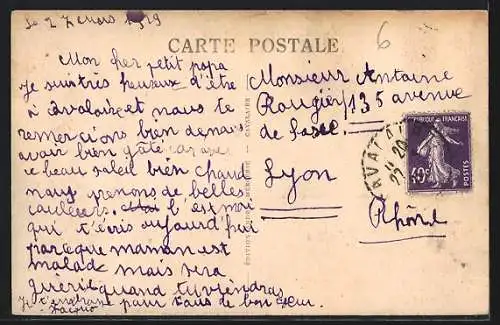 le 27 mars 1929
6
CARTE POSTALE
Mon cher petit papa
Je suis très heureux d'être
à cavalaire et nous te
remercions bien de nous
avoir bien gâté car avec
ce beau soleil bien chaud
nous prenons de belles
couleurs. c'est moi
qui t'écris aujourd'hui
parceque maman est
malade mais sera
guerie quand tu viendras
Je t'embrasse pour tous de bon cœur.
Jacques
Monsieur Antoine
Rougier 135 avenue
de Saxe.
Lyon
Rhône
REPUBLIQUE FRANÇAISE
40c
POSTES